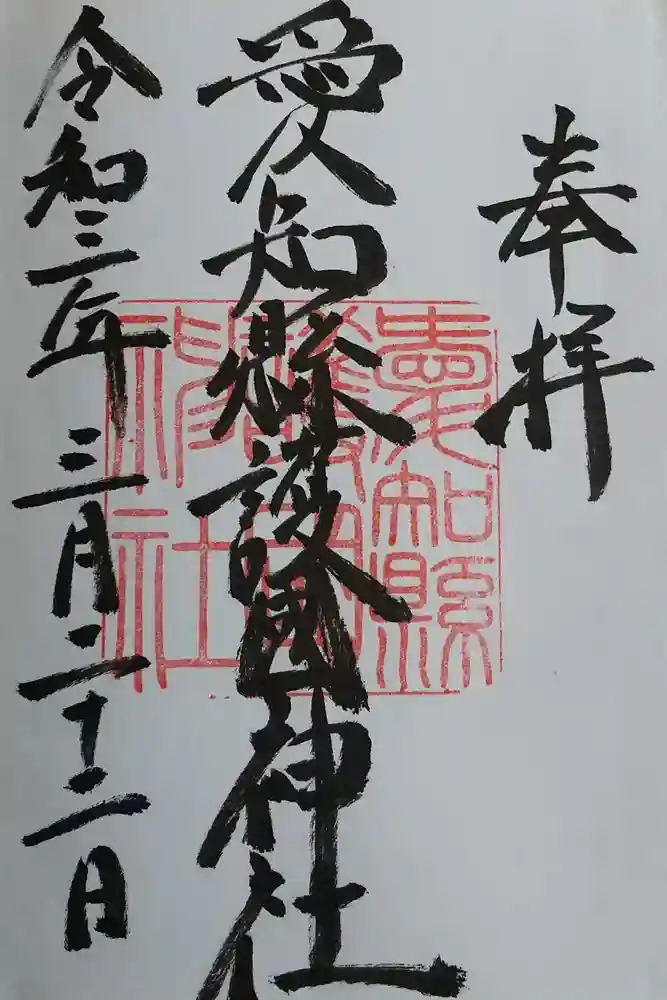 奉拝
愛知縣護國神社
愛知縣
護國
神社
令和三年三月二十二日